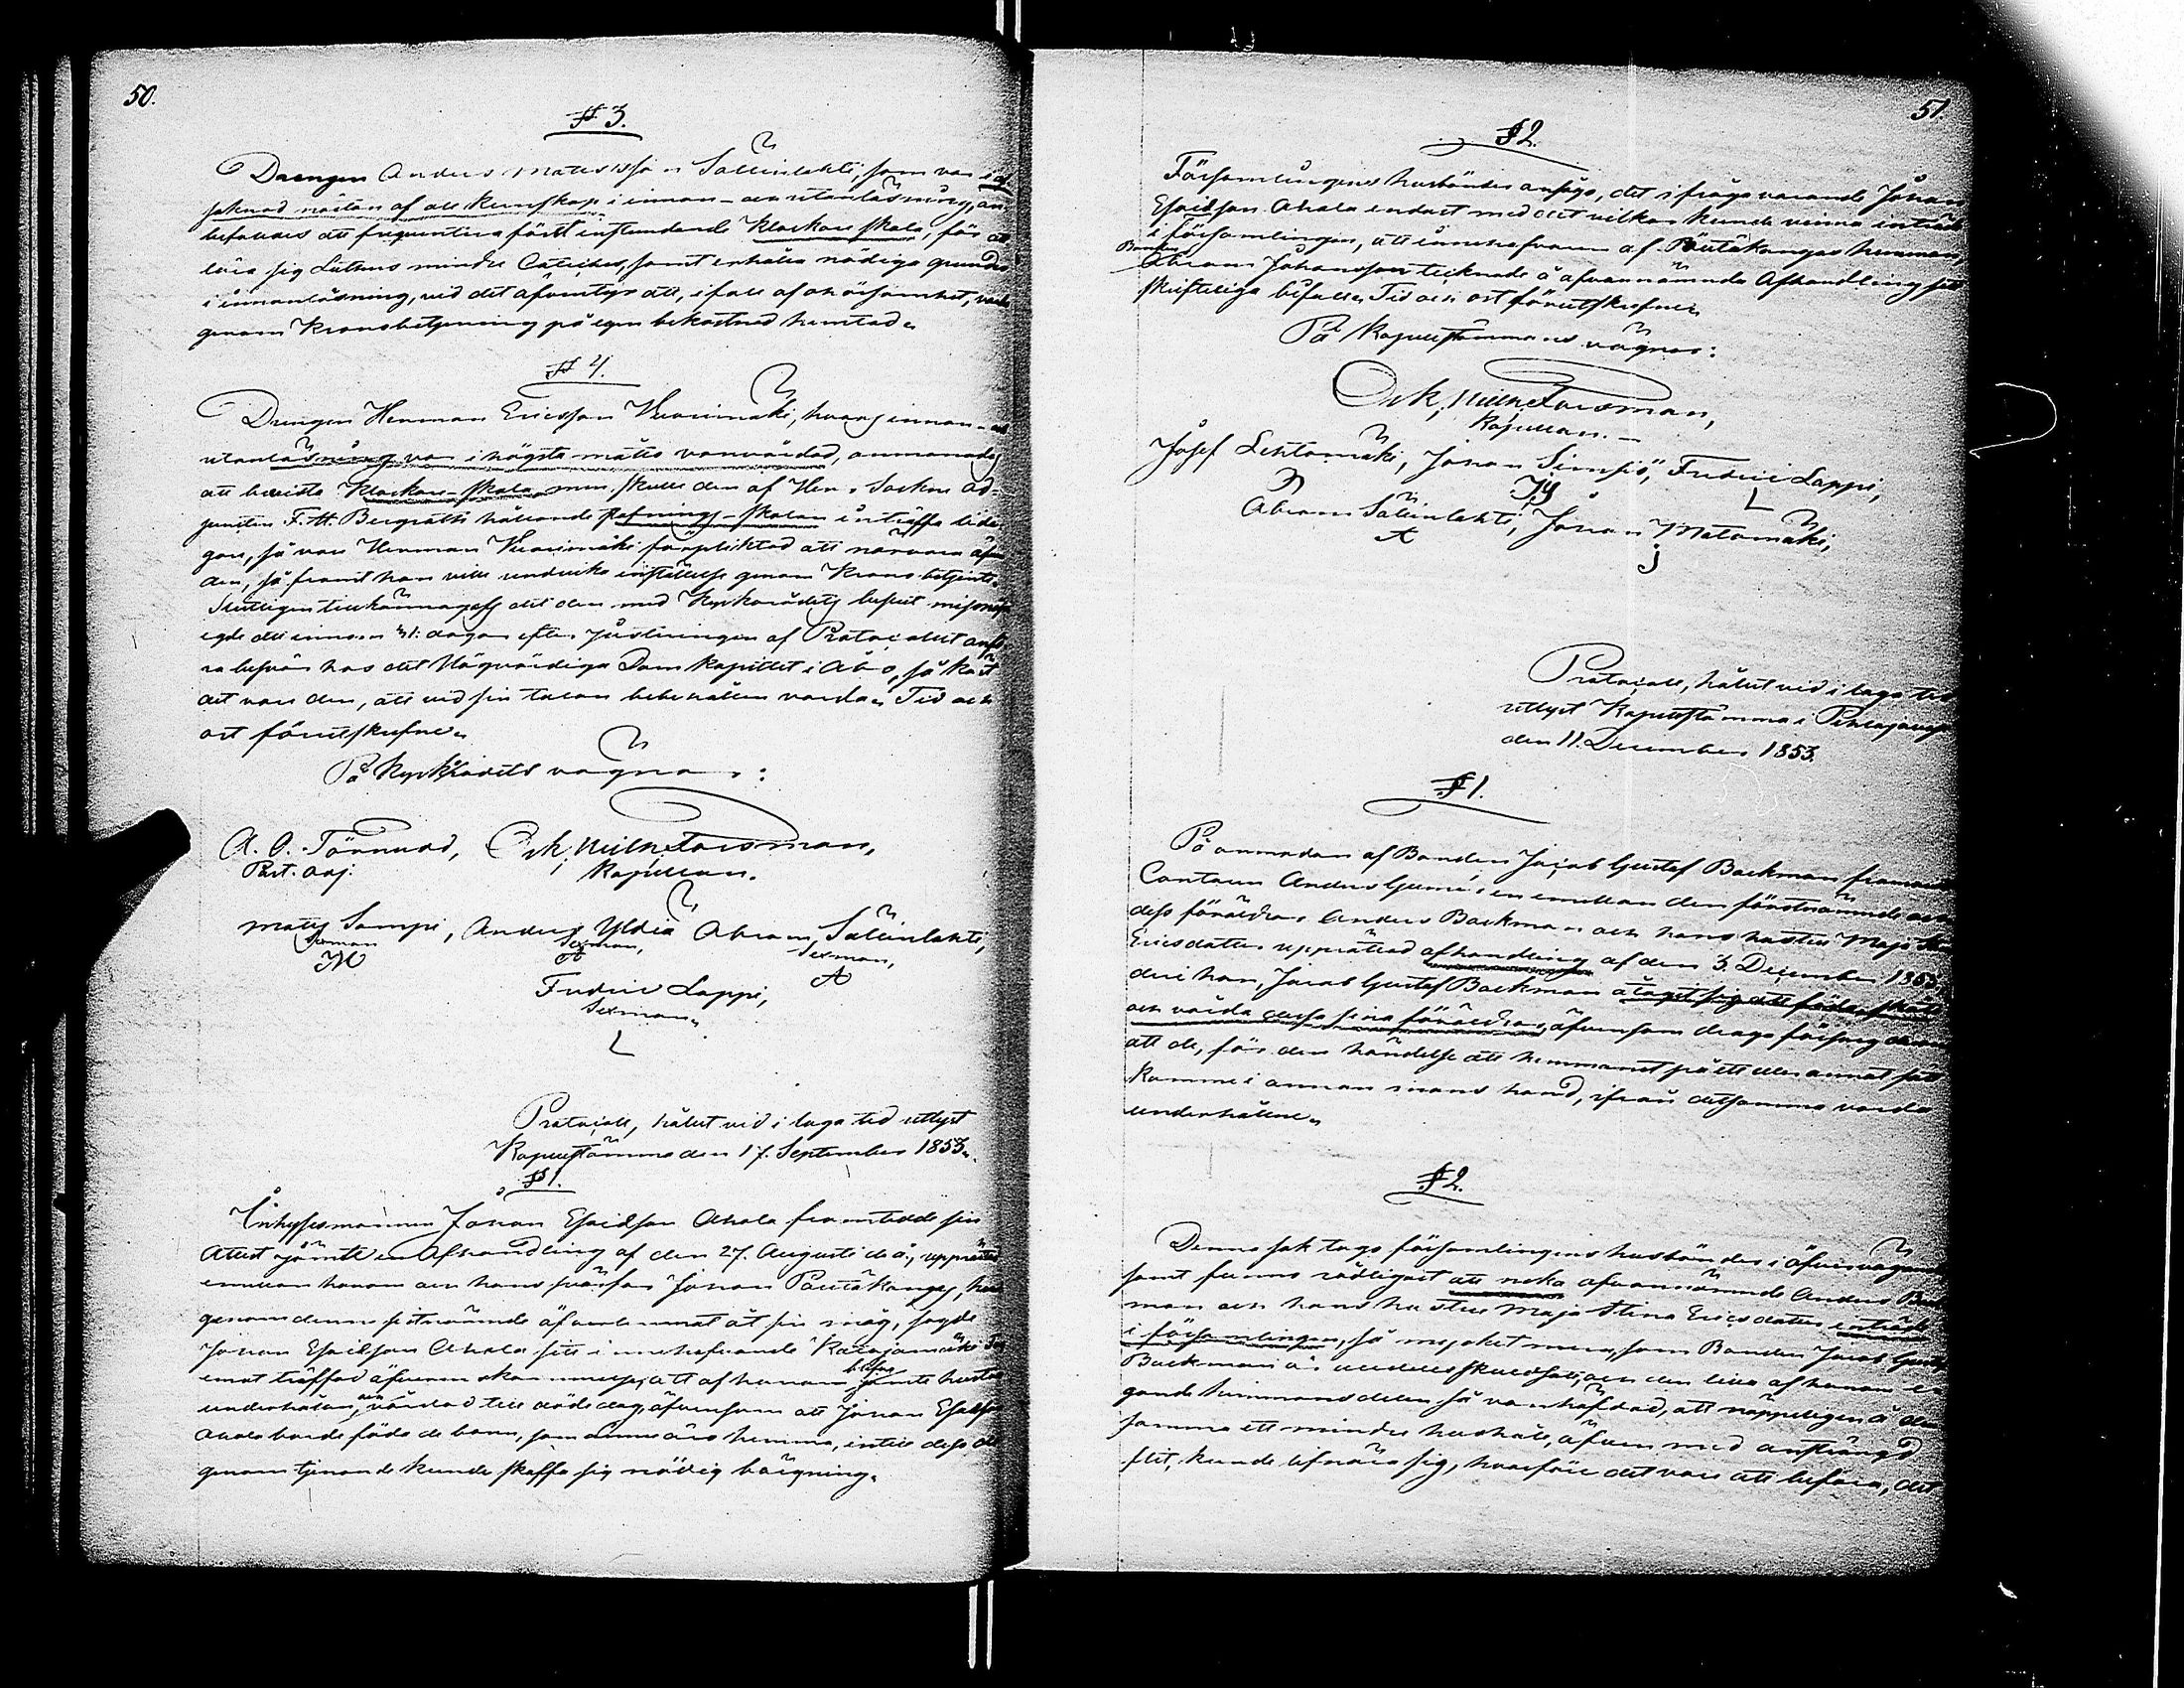 50.
§ 3.
Drengen Anders Matsson Salinlahti, som var i af-
saknad nästan af all kunskap i innan- och utanläsning, an-
befaldes att frequentera först instundande Klockare skola, för att
lära sig Luthers mindre Cateches, samt erhålla nödiga grunder
i innanläsning, vid det äfventyr att, i fall af ohörsamhet, varda
genom Kronobetjening på egen bekostnad hemtad.
§ 4.
Drengen Herman Ericsson Vuorimäki, hvars innan- och
utanläsning var i högsta måtto vanvårdad, anmanades
att bevista Klockare-skola men skulle den af Herr Sockne Ad-
juncten F. H. Bergroth hållande stafnings-skolan inträffa tidi-
gare, så vore Herman Vuorimäki förpliktad att närvara äfven
den, så framt han ville undvika inställelse genom Krono betjente.
Slutligen tillkännagafs att den med Kyrkorådets beslut missnöjde
egde att innom 31: dagar efter justeringen af Protocollet anfö-
ra besvär hos det Högvördiga Dom kapitlet i Åbo, så kärt
det vore den, att vid sin talan bibehållen varda. Tid och
ort förutskrefne.
På Kyrkorådets vägnar:
A. O. Törnudd, Osk. Wilh. Forsman,
Past. adj. Kapellan.
Mats Sampi, Anders Yldiä Abram Salinlahti,
Sexman Sexman, Sexman,
M A A
Fredric Lappi,
Sexman.
L
Protocoll, hållet vid i laga tid utlyst
Kapellstämma den 17. September 1853.
§ 1.
Inhysesmannen Johan Esaiasson Ahola framtedde sin
Attest jämte en Afhandling af den 27. Augusti d. å., upprättad
emellan honom och hans svärfar Johan Pöntäkangas, hvari-
genom denne sistnämnde äfverlemnat åt sin måg, sagde
Johan Esaiasson Ahola sitt innehafvande
emot träffad äfverenskommelse, att af honom blifva jemte hustru
underhållen och vårdad till dödedag, äfvensom att Johan Esaiasson
Ahola borde föda de barn, som ännu äro hemma, intill dess de
genom tjenande kunde skaffa sig nödig bärgning.
51.
§ 2.
Församlingens husbönder ansågo, det ifrågavarande Johan
Esaiasson Ahola endast med det vilkor kunde vinna inträde
i församlingen, att innehafvaren af Pöntäkangas hemman,
Bonden
Abram Johansson tecknade å afvannämnda Afhandling sitt
skriftliga bifall. Tid och ort förutskrefne.
På Kapellstämmans vägnar:
Osk. Wilh. Forsman,
Kapellan.
Josef Lehtomäki, Johan Simsiö, Fredric Lappi,
L
Abram Salinlahti, Johan Matomäki,
A j
Protocoll, hållet vid i laga tid
utlyst Kapellstämma i
den 11. December 1853.
§ 1.
På anmodan af Bonden Jacob Gustaf Backman framtedde
Cantorn Anders en emellan den förstnämnde och
dess föräldrar Anders Backman och hans hustru Maja Stina
Ericsdotter upprättad afhandling af den 3. December 1853,
deri han, Jacob Gustaf Backman åtagit sig att föda, sköta
och vårda dessa sina föräldrar, äfvensom draga försorg derom
att de, för den händelse att hemmanet på ett eller annat sätt
komme i annan mans hand, ifrån detsamma varda
underhållne.
§ 2.
Denna sak togo församlingens husbönder i öfvervägande
samt funno rådligast att neka afvannämnde Anders Back-
man och hans hustru Maja Stina Ericsdotter inträde
i församlingen, så mycket mera, som Bonden Jacob Gustaf
Backman är alldeles skuldsatt, och den lilla af honom e-
gande hemmansdelen så vanhäfdad, att näppeligen å den-
samma ett mindre hushåll, äfven med ansträngd
flit, kunde lifnära sig, hvarföre det vore att befara, det